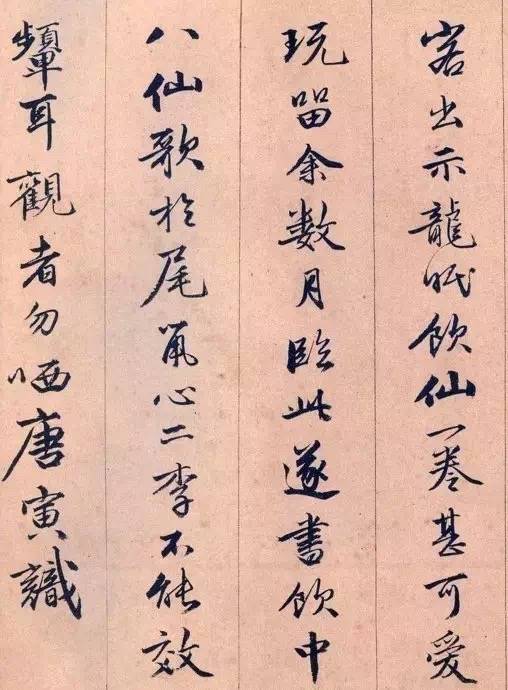 客出示龍眠飲仙一卷甚可愛
玩留余数月臨此遂書飲中
八仙歌於尾心二李不能效
顰耳觀者勿哂唐寅識